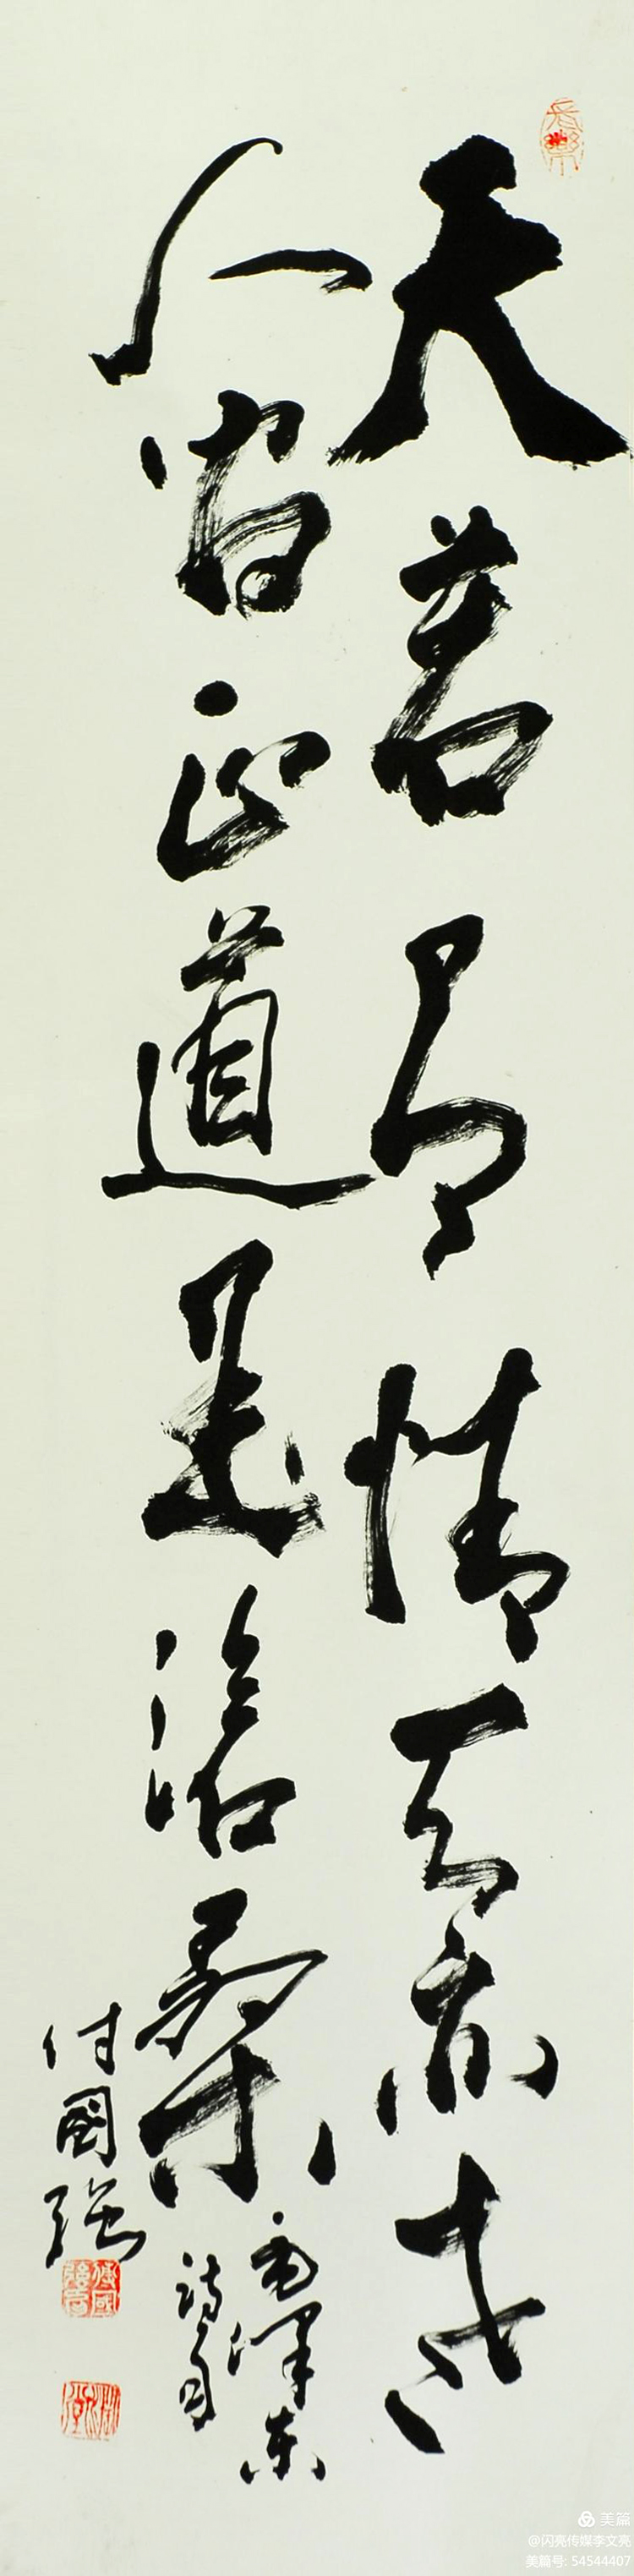 天若有情天亦老
人间正道是沧桑
毛泽东
诗句
付國强
美篇
@闪亮传媒李文亮
美篇号: 54544407